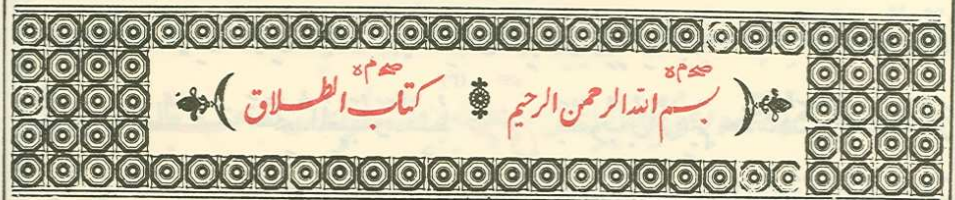 (بسم الله الرحمن الرحيم كتاب الطلاق)